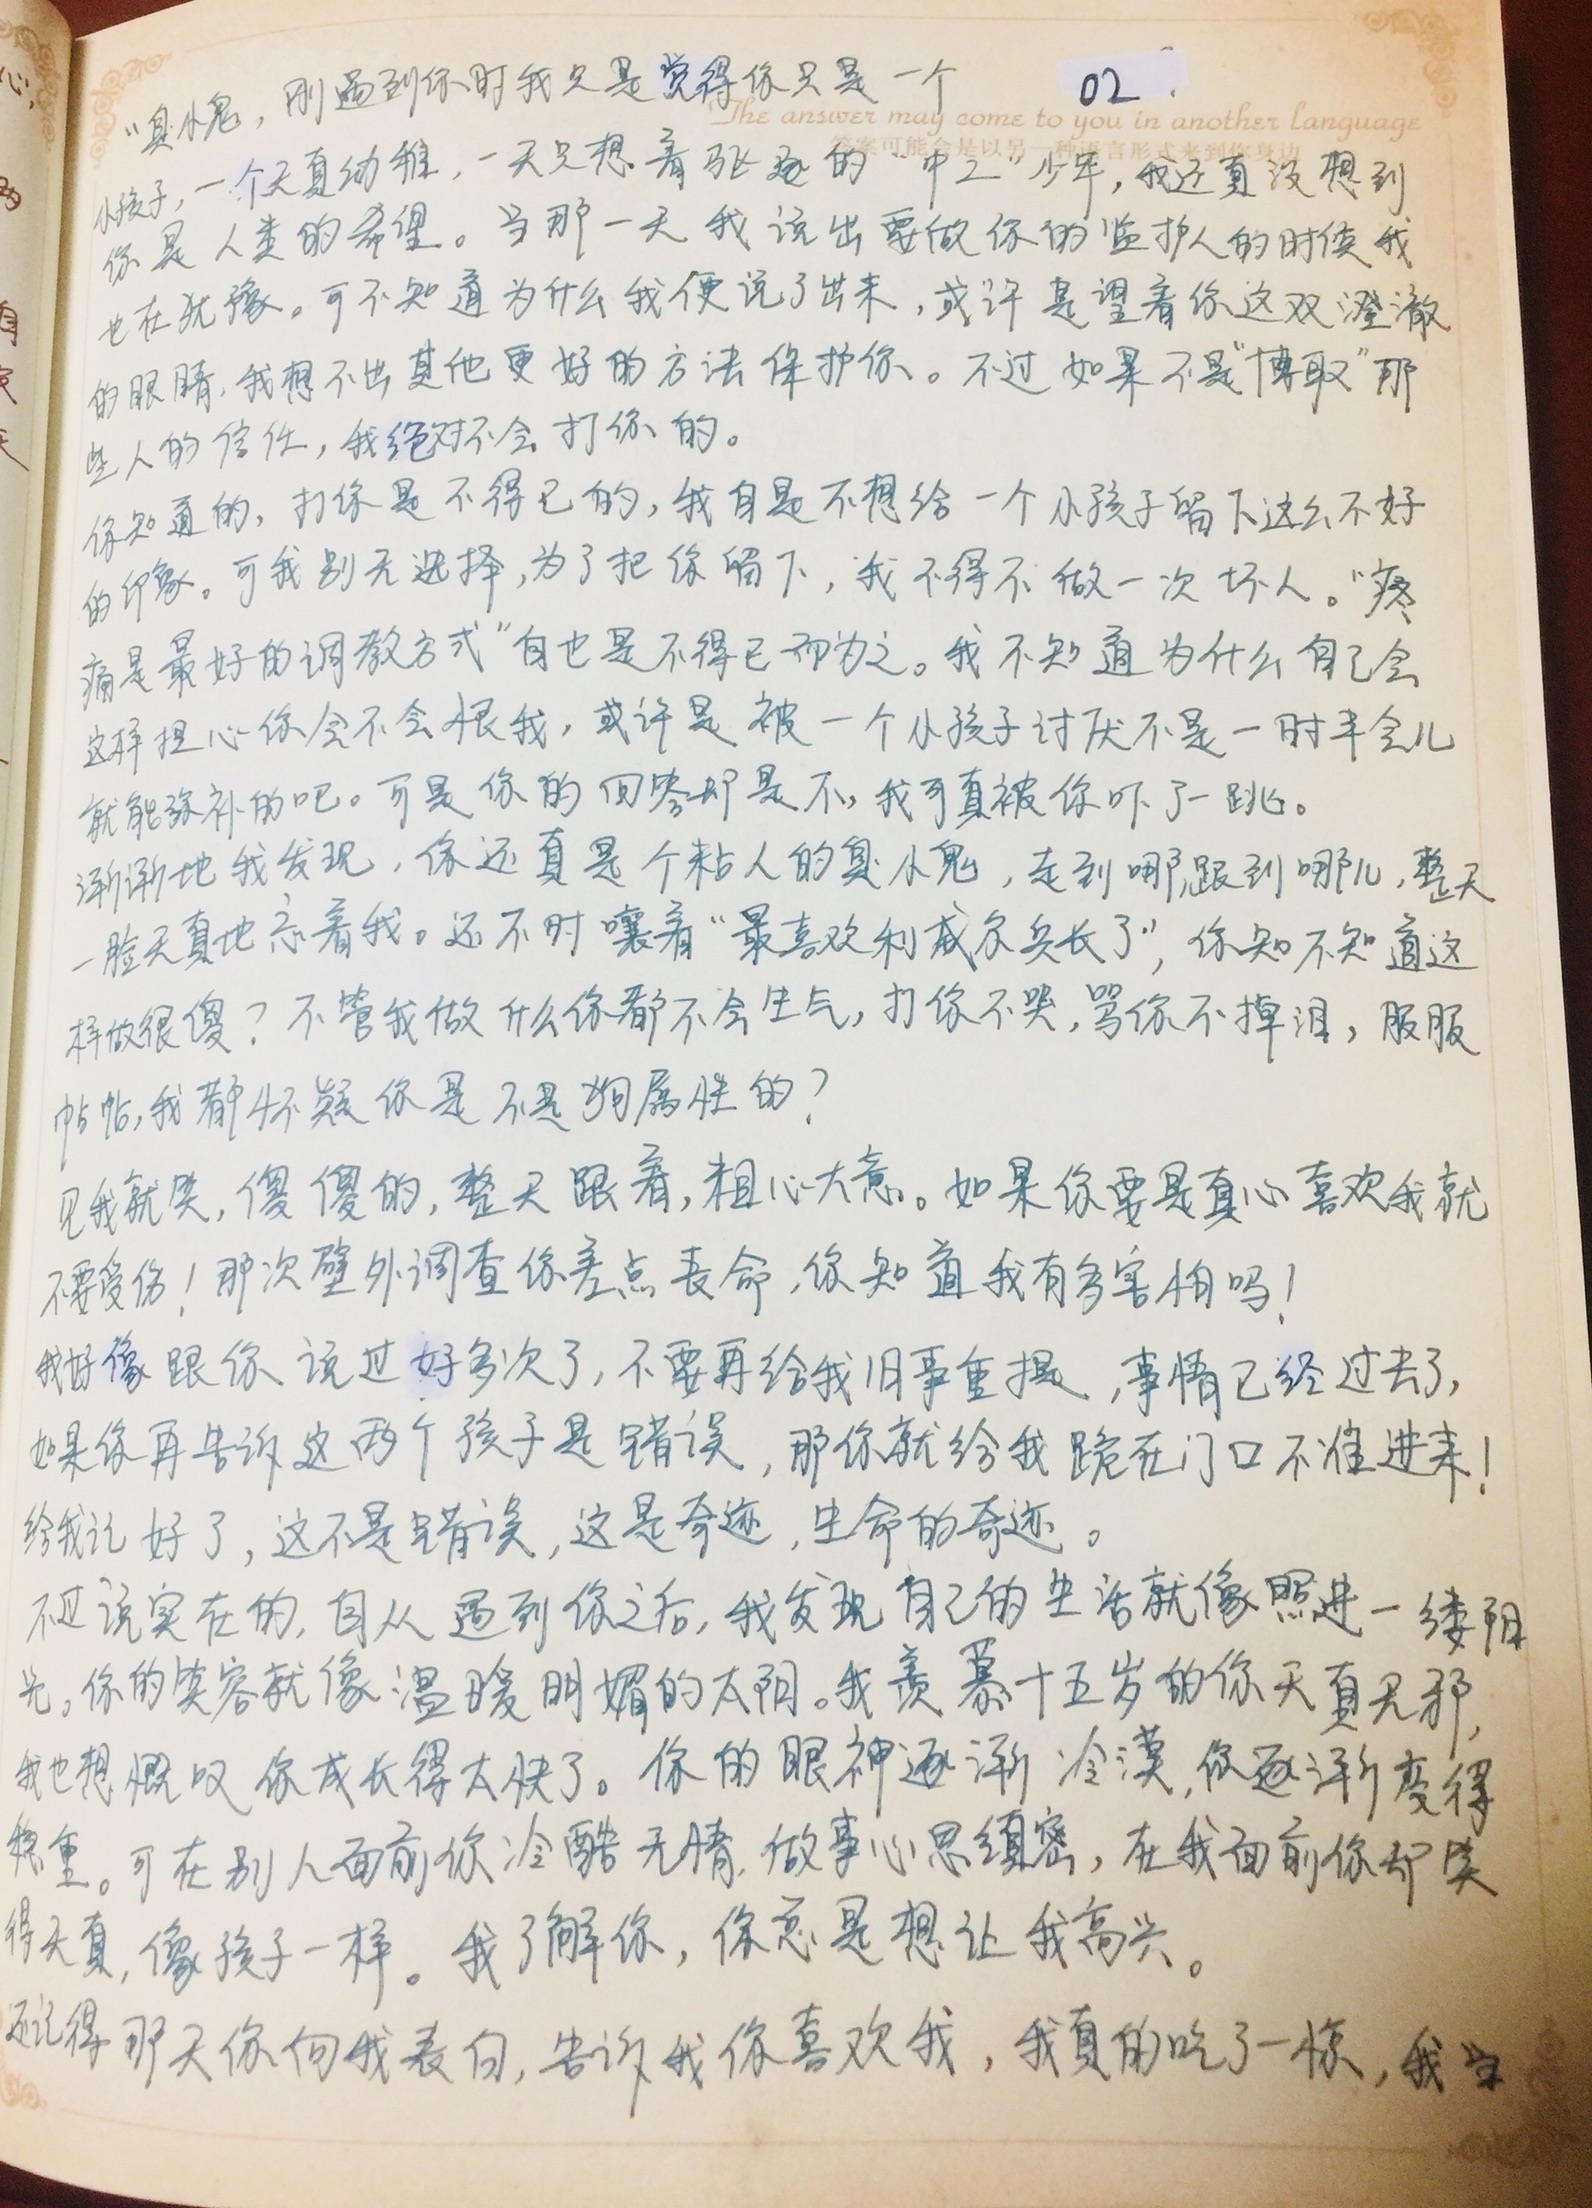 02
The answer may come to you in another language
答案可能会是以另一种语言形式来到你身边
“臭小鬼，刚遇到你时我只是觉得你只是一个
小孩子，一个天真幼稚，一天只想着驱逐的“中二”少年，我还真没想到
你是人类的希望。当那一天我说出要做你的监护人的时候我
也在犹豫。可不知道为什么我便说了出来，或许是望着你这双澄澈
的眼睛，我想不出其他更好的方法保护你。不过如果不是“博取”那
些人的信任，我绝对不会打你的。
你知道的，打你是不得已的，我自是不想给一个小孩子留下这么不好
的印象。可我别无选择，为了把你留下，我不得不做一次坏人。“疼
痛是最好的调教方式”自也是不得已而为之。我不知道为什么自己会
这样担心你会不会恨我，或许是被一个小孩子讨厌不是一时半会儿
就能弥补的吧。可是你的回答却是不，我可真被你吓了一跳。
渐渐地我发现，你还真是个粘人的臭小鬼，走到哪儿跟到哪儿，整天
一脸天真地念着我。还不时嚷着“最喜欢利威尔兵长了”，你知不知道这
样做很傻？不管我做什么你都不会生气，打你不哭，骂你不掉泪，服服
帖帖，我都怀疑你是不是狗属性的？
见我就笑，傻傻的，整天跟着，粗心大意。如果你要是真心喜欢我就
不要受伤！那次壁外调查你差点丧命，你知道我有多害怕吗！
我好像跟你说过好多次了，不要再给我旧事重提，事情已经过去了，
如果你再告诉这两个孩子是错误，那你就给我跪在门口不准进来！
给我记好了，这不是错误，这是奇迹，生命的奇迹。
不过说实在的，自从遇到你之后，我发现自己的生活就像照进一缕阳
光，你的笑容就像温暖明媚的太阳。我羡慕十五岁的你天真无邪，
我也想慨叹你成长得太快了。你的眼神逐渐冷漠，你逐渐变得
稳重。可在别人面前你冷酷无情，做事心思缜密，在我面前你却笑
得天真，像孩子一样。我了解你，你总是想让我高兴。
还记得那天你向我表白，告诉我你喜欢我，我真的吃了一惊，我